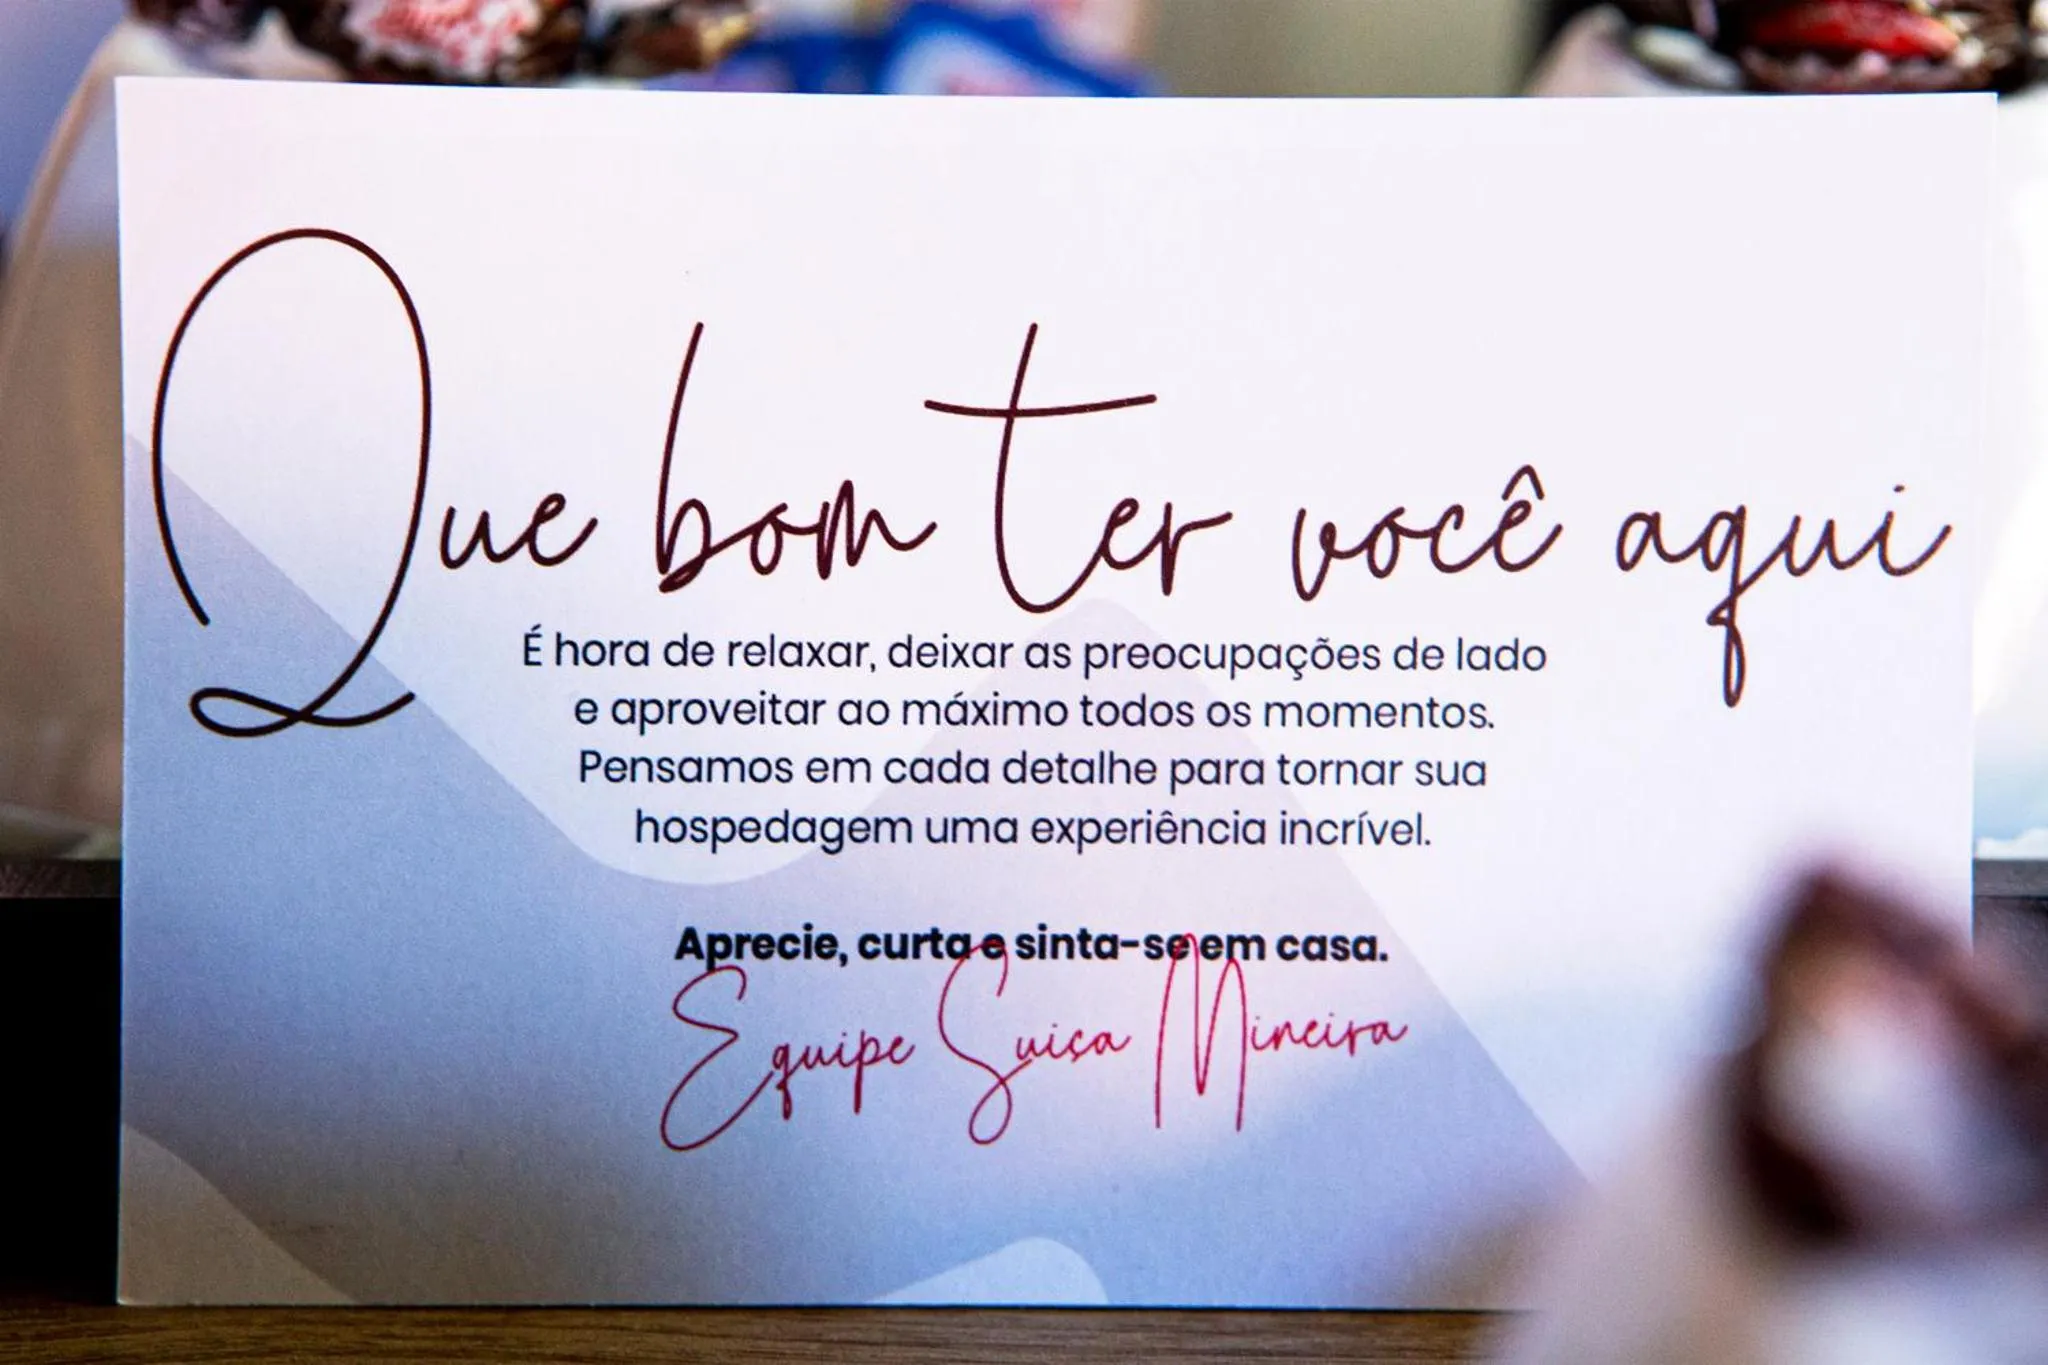 Que bom ter você aqui
É hora de relaxar, deixar as preocupações de lado
e aproveitar ao máximo todos os momentos.
Pensamos em cada detalhe para tornar sua
hospedagem uma experiência incrível.
Aprecie, curta e sinta-se em casa.
Equipe Suiça Mineira